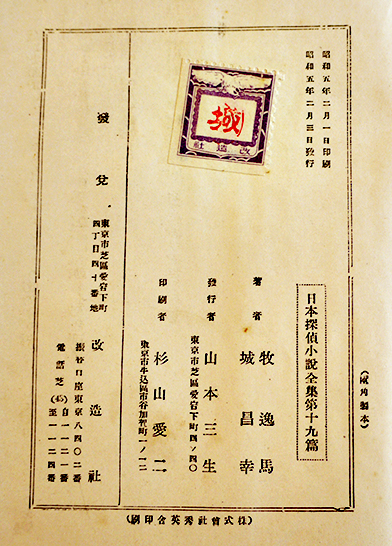 昭和五年二月一日印刷
昭和五年二月三日發行
城
改造社
(兩角製本)
日本探偵小說全集第十九篇
著者
牧逸馬
城昌幸
發行者
東京市芝區愛宕下町四ノ四〇
山本三生
印刷者
東京市牛込區市谷加賀町一ノ一二
杉山愛二
發兌
東京市芝區愛宕下町
四丁目四十番地
改造社
振替口座東京八四〇二番
電話芝(43)自一一二一番
至一一二四番
(株式會社秀英舍印刷)